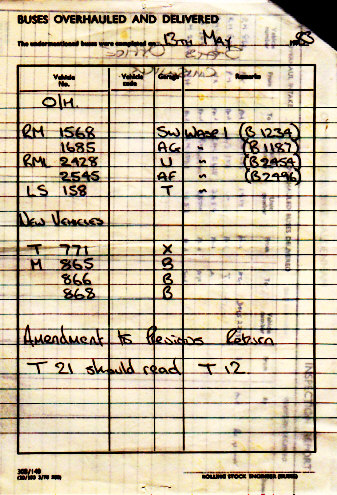 BUSES OVERHAULED AND DELIVERED
The undermentioned buses were completed on 13TH MAY 1983
Vehicle No. Vehicle code Garage Remarks
O/H.
RM 1568 SW WASE 1 (B1234)
1685 AC " (B1187)
RML 2428 U " (B2454)
2545 AF " (B2496)
LS 158 T "
NEW VEHICLES
T 771 X
M 865 B
866 B
868 B
Amendment to Previous Return
T 21 should read T 12
308/148
ROLLING STOCK ENGINEER (BUSES)